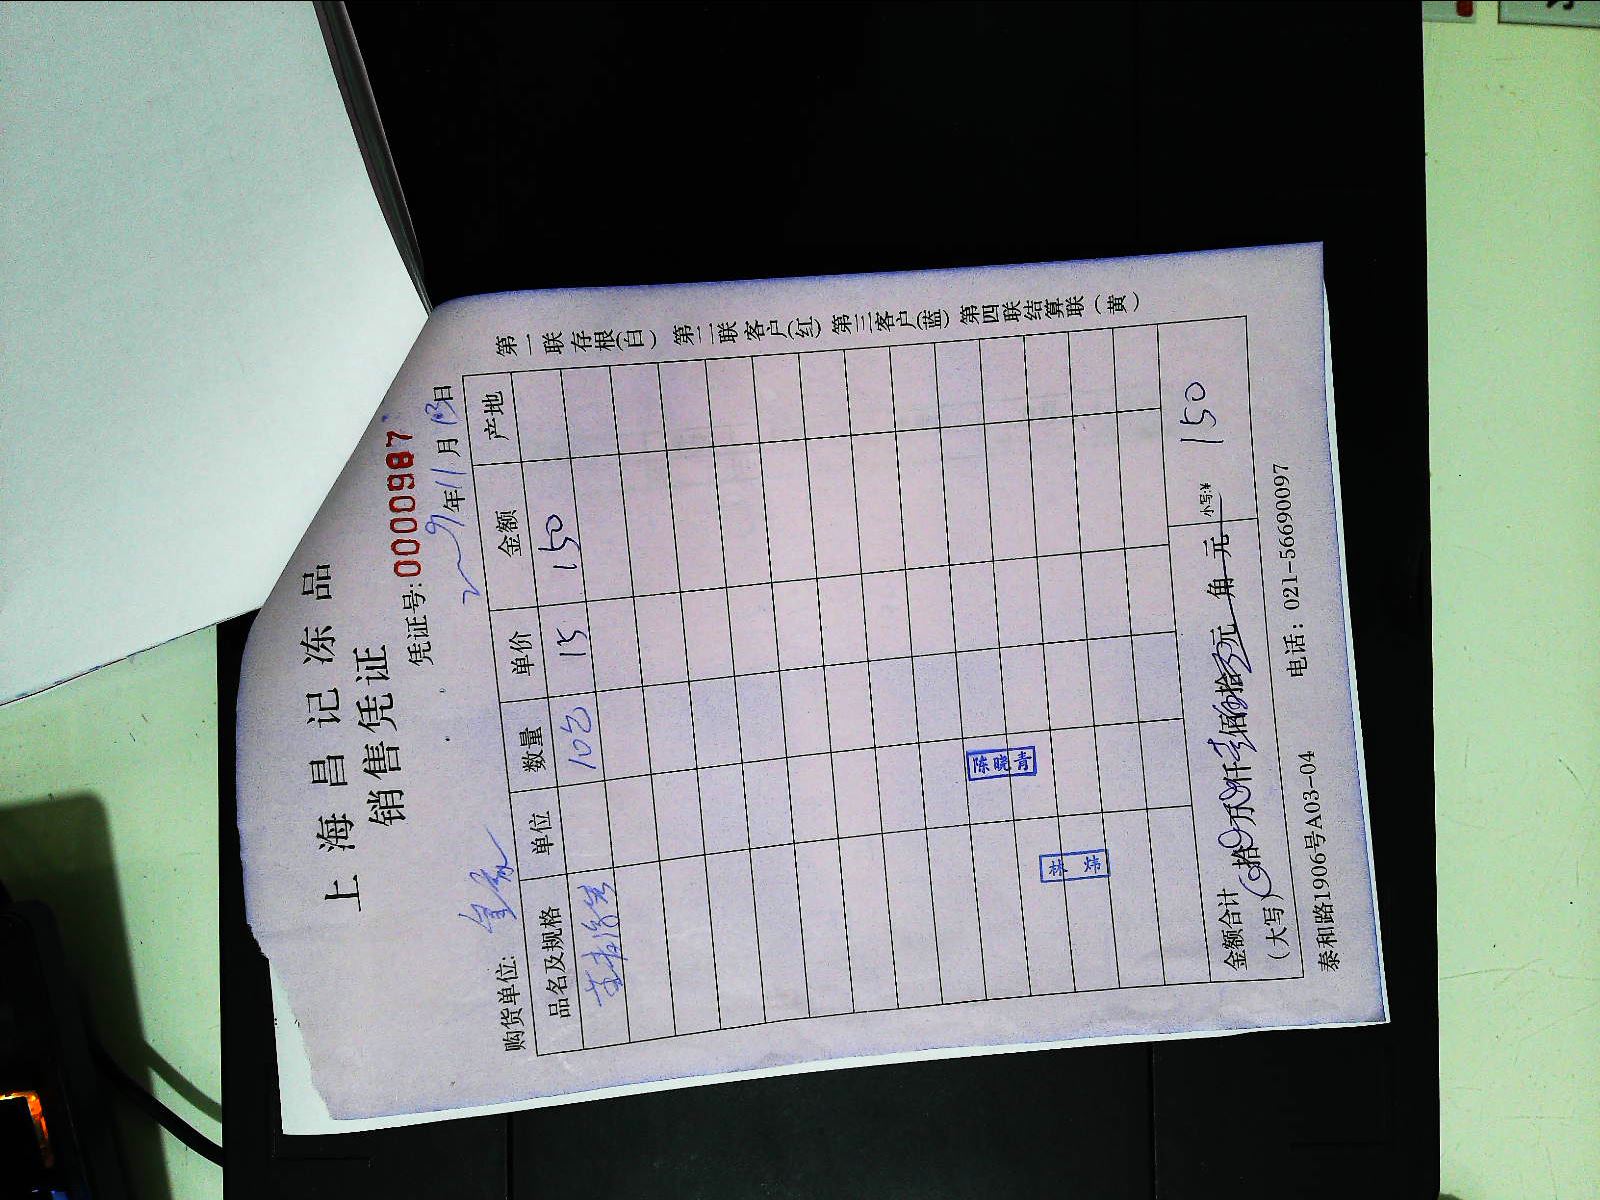 上海昌记冻品
销售凭证
凭证号:0000987
年11月13日
购货单位:
品名及规格 单位 数量 单价 金额 产地
10包 15 150
陈晓青
金额合计
(大写) 拾 万 仟 佰 拾 元 角 元 小写:¥ 150
泰和路1906号A03-04 电话：021-56690097
第一联存根(白) 第二联客户(红) 第三客户(蓝) 第四联结算联(黄)